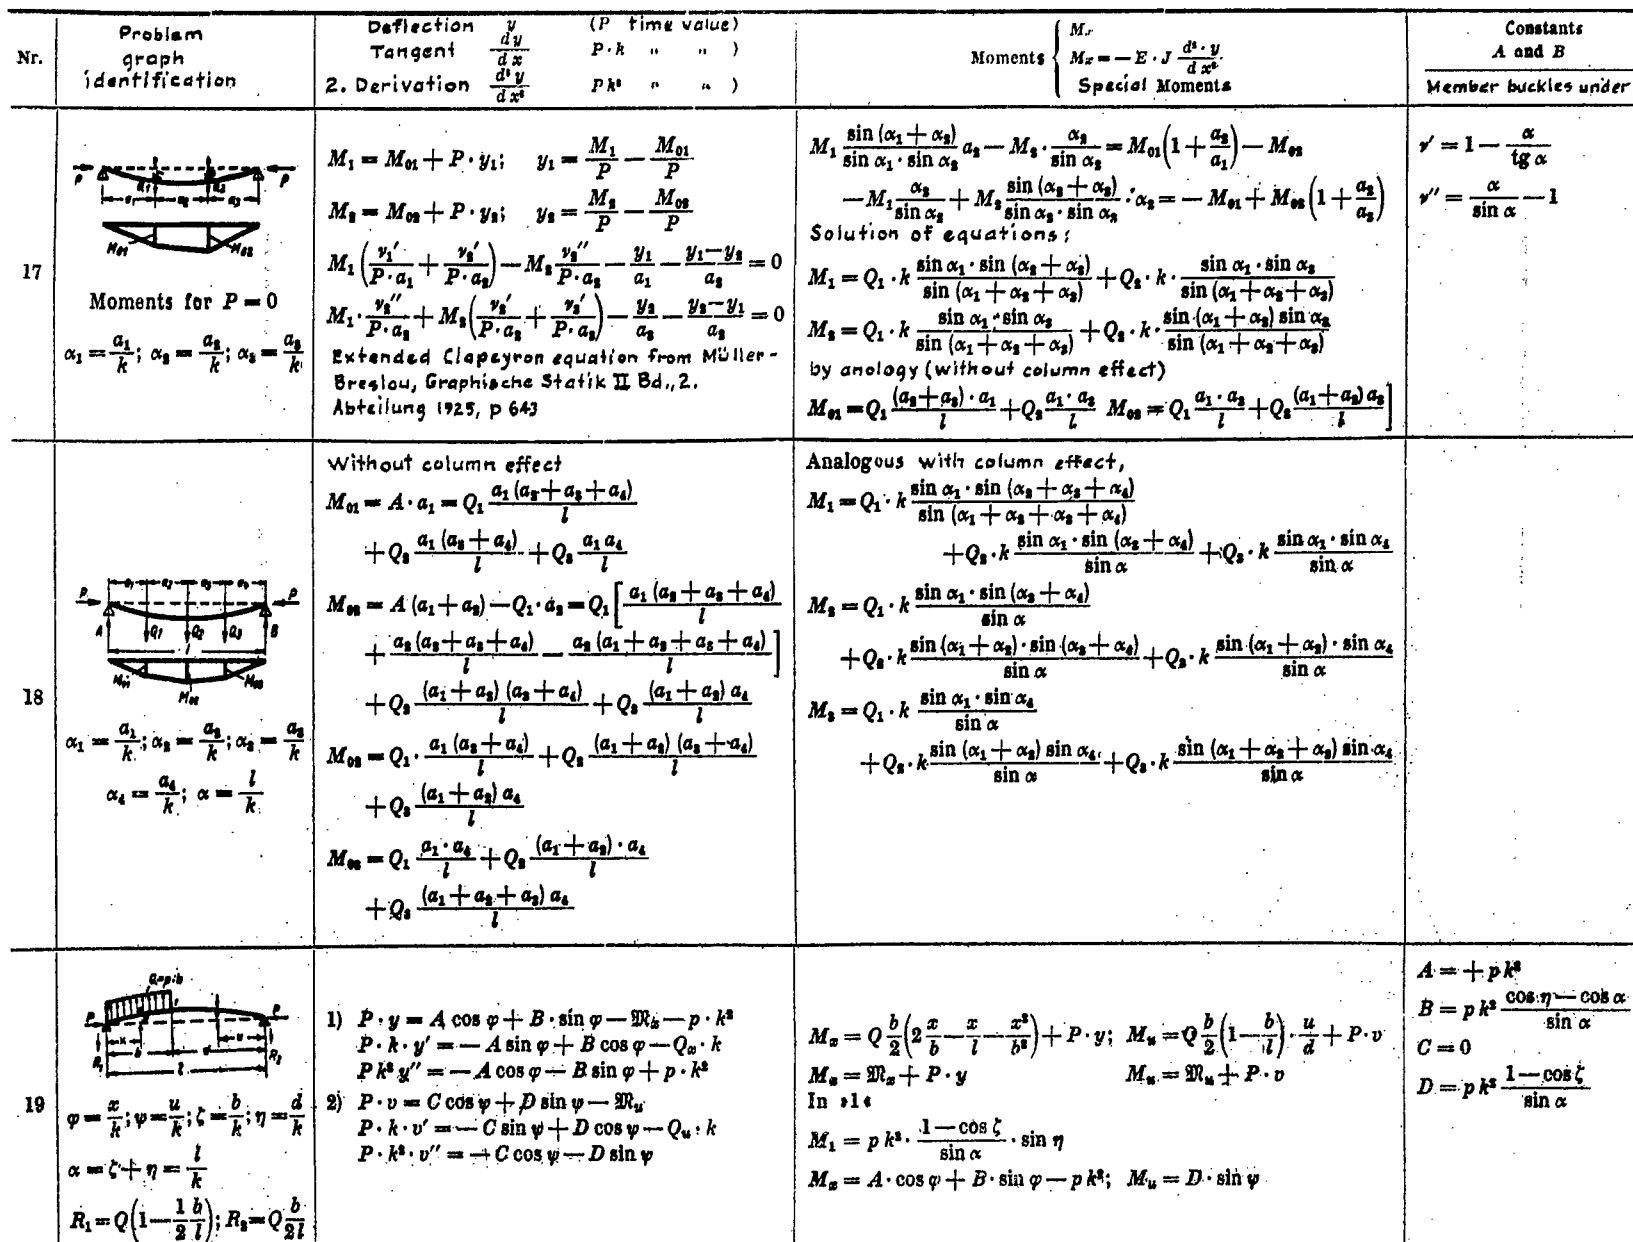 Nr.
Problem
graph
identification
Deflection y (P time value)
Tangent dy/dx P·k " " )
2. Derivation d²y/dx² Pk² " " )
Moments { Mx
Mx = − E · J d²·y/dx²
Special Moments
Constants
A and B
Member buckles under
17
P P
a₁ a₂ a₃
M₀₁ M₀₂
Moments for P = 0
α₁ = a₁/k; α₂ = a₂/k; α₃ = a₃/k
M₁ = M₀₁ + P · y₁; y₁ = M₁/P − M₀₁/P
M₂ = M₀₂ + P · y₂; y₂ = M₂/P − M₀₂/P
M₁ (ν₁′/(P·a₁) + ν₂′/(P·a₂)) − M₂ ν₂″/(P·a₂) − y₁/a₁ − (y₁−y₂)/a₂ = 0
M₁ · ν₂″/(P·a₂) + M₂ (ν₂′/(P·a₂) + ν₃′/(P·a₃)) − y₂/a₃ − (y₂−y₁)/a₂ = 0
Extended Clapeyron equation from Müller-
Breslau, Graphische Statik II Bd., 2.
Abteilung 1925, p 643
M₁ sin (α₁ + α₂)/(sin α₁ · sin α₂) a₂ − M₂ · α₂/sin α₂ = M₀₁ (1 + a₂/a₁) − M₀₂
− M₁ α₂/sin α₂ + M₂ sin (α₂ + α₃)/(sin α₂ · sin α₃) · α₂ = − M₀₁ + M₀₂ (1 + a₂/a₃)
Solution of equations:
M₁ = Q₁ · k sin α₁ · sin (α₂ + α₃)/sin (α₁ + α₂ + α₃) + Q₂ · k · sin α₁ · sin α₃/sin (α₁ + α₂ + α₃)
M₂ = Q₁ · k sin α₁ · sin α₃/sin (α₁ + α₂ + α₃) + Q₂ · k · sin (α₁ + α₂) sin α₃/sin (α₁ + α₂ + α₃)
by anology (without column effect)
M₀₁ = Q₁ (a₂+a₃) · a₁/l + Q₂ a₁ · a₃/l M₀₂ = Q₁ a₁ · a₃/l + Q₂ (a₁+a₂) a₃/l ]
ν′ = 1 − α/tg α
ν″ = α/sin α − 1
18
a₁ a₂ a₃ a₄
P P
A Q₁ Q₂ Q₃ B
l
M₀₁ M₀₂ M₀₃
α₁ = a₁/k; α₂ = a₂/k; α₃ = a₃/k
α₄ = a₄/k; α = l/k
Without column effect
M₀₁ = A · a₁ = Q₁ a₁ (a₂ + a₃ + a₄)/l
+ Q₂ a₁ (a₃ + a₄)/l + Q₃ a₁ a₄/l
M₀₂ = A (a₁ + a₂) − Q₁ · a₂ = Q₁ [a₁ (a₂ + a₃ + a₄)/l
+ a₂ (a₂ + a₃ + a₄)/l − a₂ (a₁ + a₂ + a₃ + a₄)/l]
+ Q₂ (a₁ + a₂) (a₃ + a₄)/l + Q₃ (a₁ + a₂) a₄/l
M₀₂ = Q₁ · a₁ (a₃ + a₄)/l + Q₂ (a₁ + a₂) (a₃ + a₄)/l
+ Q₃ (a₁ + a₂) a₄/l
M₀₃ = Q₁ a₁ · a₄/l + Q₂ (a₁ + a₂) · a₄/l
+ Q₃ (a₁ + a₂ + a₃) a₄/l
Analogous with column effect,
M₁ = Q₁ · k sin α₁ · sin (α₂ + α₃ + α₄)/sin (α₁ + α₂ + α₃ + α₄)
+ Q₂ · k sin α₁ · sin (α₃ + α₄)/sin α + Q₃ · k sin α₁ · sin α₄/sin α
M₂ = Q₁ · k sin α₁ · sin (α₃ + α₄)/sin α
+ Q₂ · k sin (α₁ + α₂) · sin (α₃ + α₄)/sin α + Q₃ · k sin (α₁ + α₂) · sin α₄/sin α
M₃ = Q₁ · k sin α₁ · sin α₄/sin α
+ Q₂ · k sin (α₁ + α₂) sin α₄/sin α + Q₃ · k sin (α₁ + α₂ + α₃) sin α₄/sin α
19
Q=p·b
P P
R₁ x b u l R₂
φ = x/k; ψ = u/k; ζ = b/k; η = d/k
α = ζ + η = l/k
R₁ = Q (1 − 1/2 b/l); R₂ = Q b/2l
1) P · y = A cos φ + B · sin φ − 𝔐x − p · k²
P · k · y′ = − A sin φ + B cos φ − Qx · k
P k² y″ = − A cos φ − B sin φ + p · k²
2) P · v = C cos ψ + D sin ψ − 𝔐u
P · k · v′ = − C sin ψ + D cos ψ − Qu · k
P · k² · v″ = − C cos ψ − D sin ψ
Mx = Q b/2 (2 x/b − x/l − x²/b²) + P · y; Mu = Q b/2 (1 − b/l) · u/d + P · v
Mx = 𝔐x + P · y Mu = 𝔐u + P · v
In »1«
M₁ = p k² · (1 − cos ζ)/sin α · sin η
Mx = A · cos φ + B · sin φ − p k²; Mu = D · sin ψ
A = + p k²
B = p k² (cos η − cos α)/sin α
C = 0
D = p k² (1 − cos ζ)/sin α